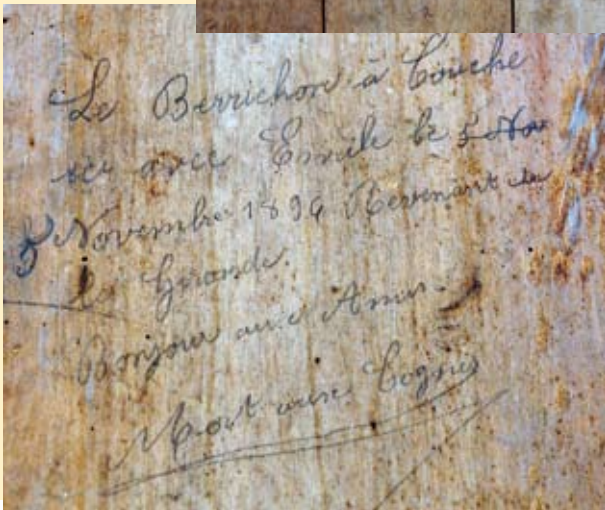 Le Berrichon à Couché
ici avec Emile le 5 Nov
5 Novembre 1896 Revenant de
la Gironde.
Bonjour aux Amis
Mort aux Cognes